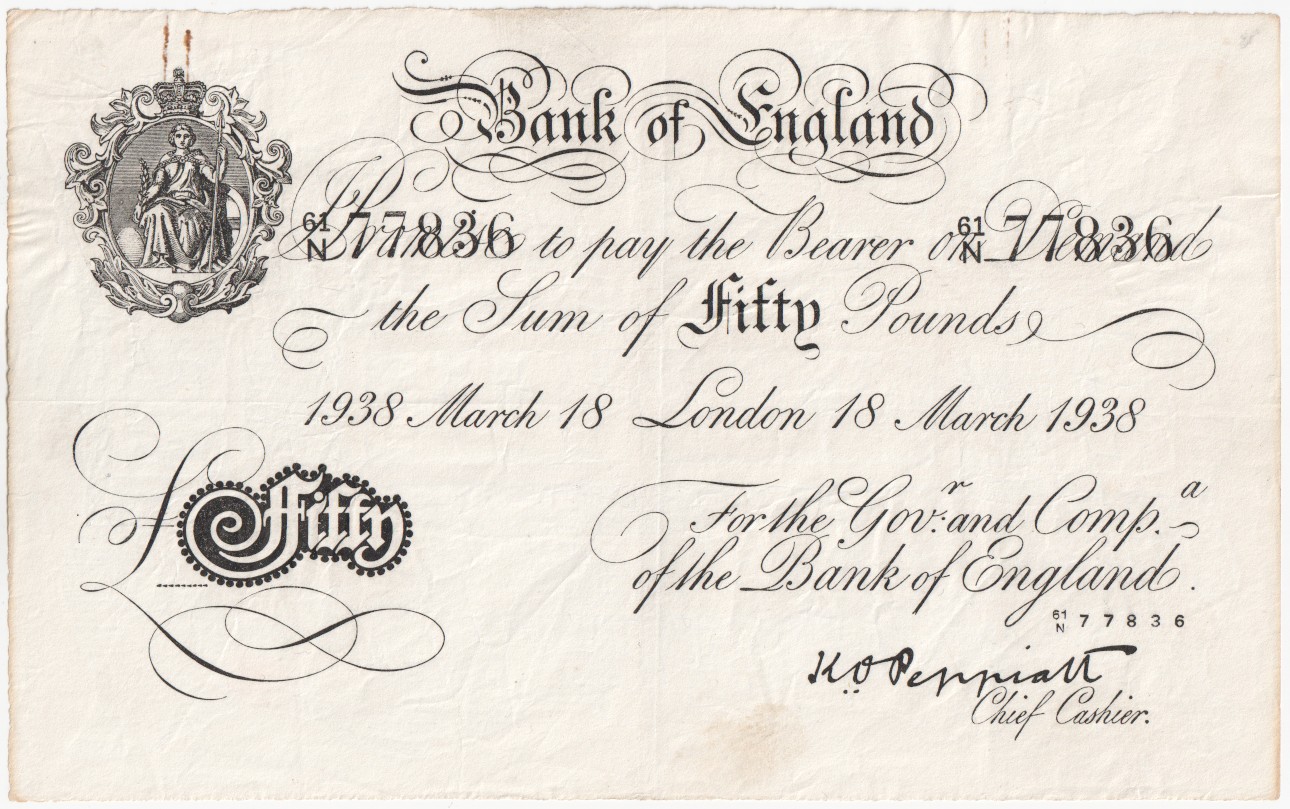 Bank of England
I Promise to pay the Bearer on Demand
61/N 77836 61/N 77836
the Sum of Fifty Pounds
1938 March 18 London 18 March 1938
£ Fifty
For the Govr. and Compa.
of the Bank of England.
61/N 77836
K.O. Peppiatt
Chief Cashier.